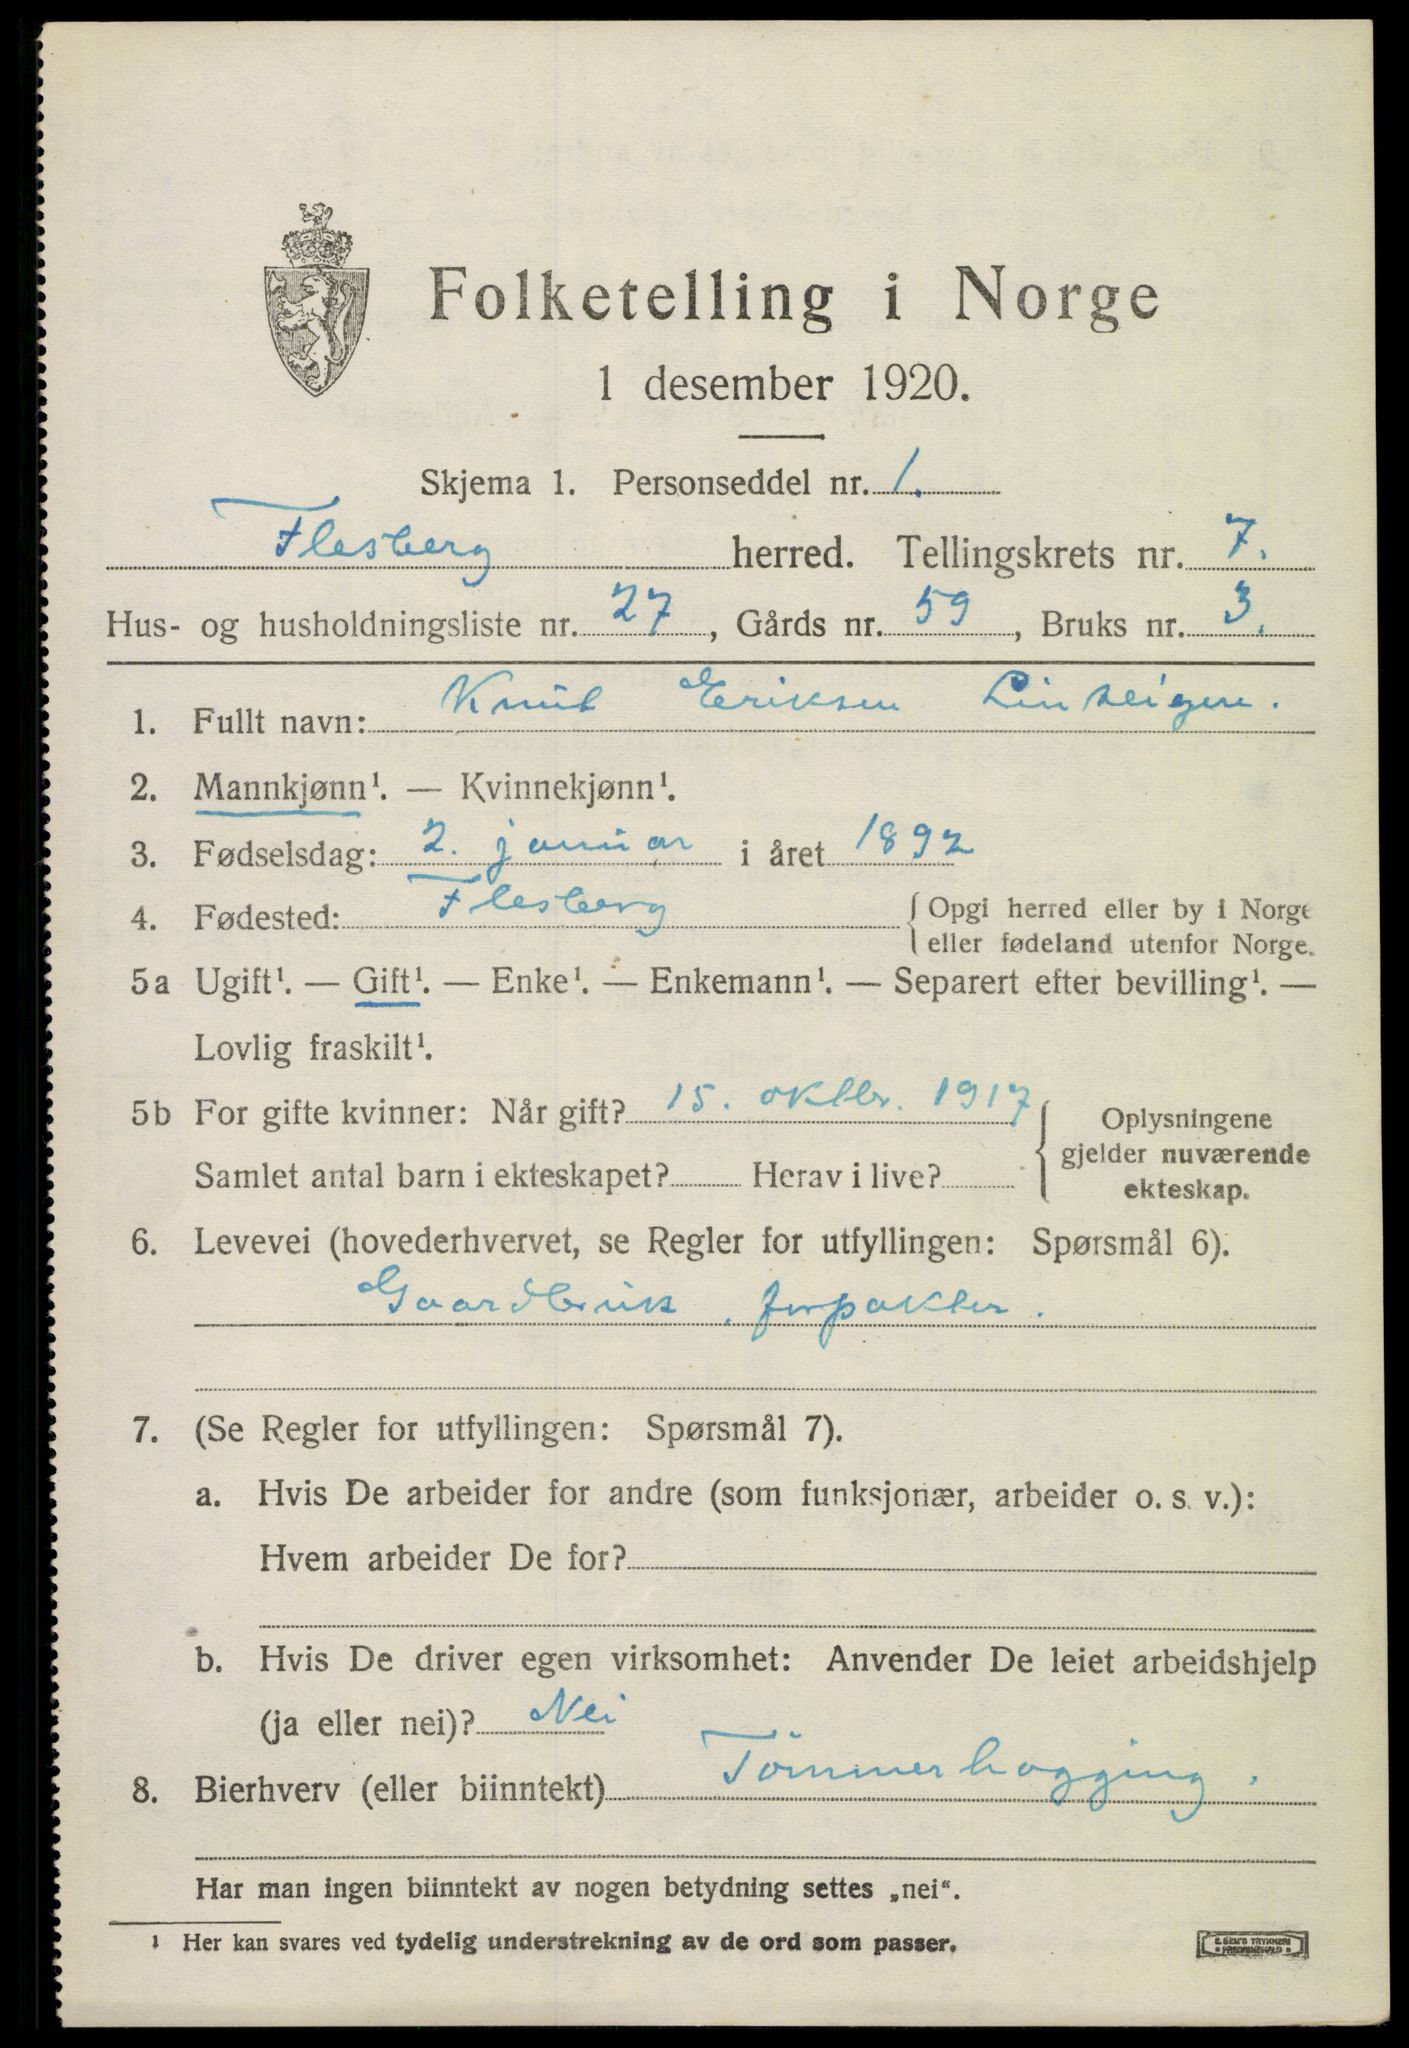 Folketelling i Norge
1 desember 1920.
Skjema 1. Personseddel nr. 1.
Flesberg herred. Tellingskrets nr. 7.
Hus- og husholdningsliste nr. 27, Gårds nr. 59, Bruks nr. 3.
1. Fullt navn: Knut Eriksen
2. Mannkjønn¹. — Kvinnekjønn¹.
3. Fødselsdag: 2. januar i året 1892
4. Fødested: Flesberg { Opgi herred eller by i Norge
eller fødeland utenfor Norge.
5a Ugift¹. — Gift¹. — Enke¹. — Enkemann¹. — Separert efter bevilling¹. —
Lovlig fraskilt¹.
5b For gifte kvinner: Når gift? 15. oktbr. 1917 { Oplysningene
gjelder nuværende
ekteskap.
Samlet antal barn i ekteskapet? Herav i live?
6. Levevei (hovederhvervet, se Regler for utfyllingen: Spørsmål 6).
Gaardbruk, forpakter.
7. (Se Regler for utfyllingen: Spørsmål 7).
a. Hvis De arbeider for andre (som funksjonær, arbeider o. s. v.):
Hvem arbeider De for?
b. Hvis De driver egen virksomhet: Anvender De leiet arbeidshjelp
(ja eller nei)? Nei
8. Bierhverv (eller biinntekt) Tömmerhogging.
Har man ingen biinntekt av nogen betydning settes „nei“.
¹ Her kan svares ved tydelig understrekning av de ord som passer.